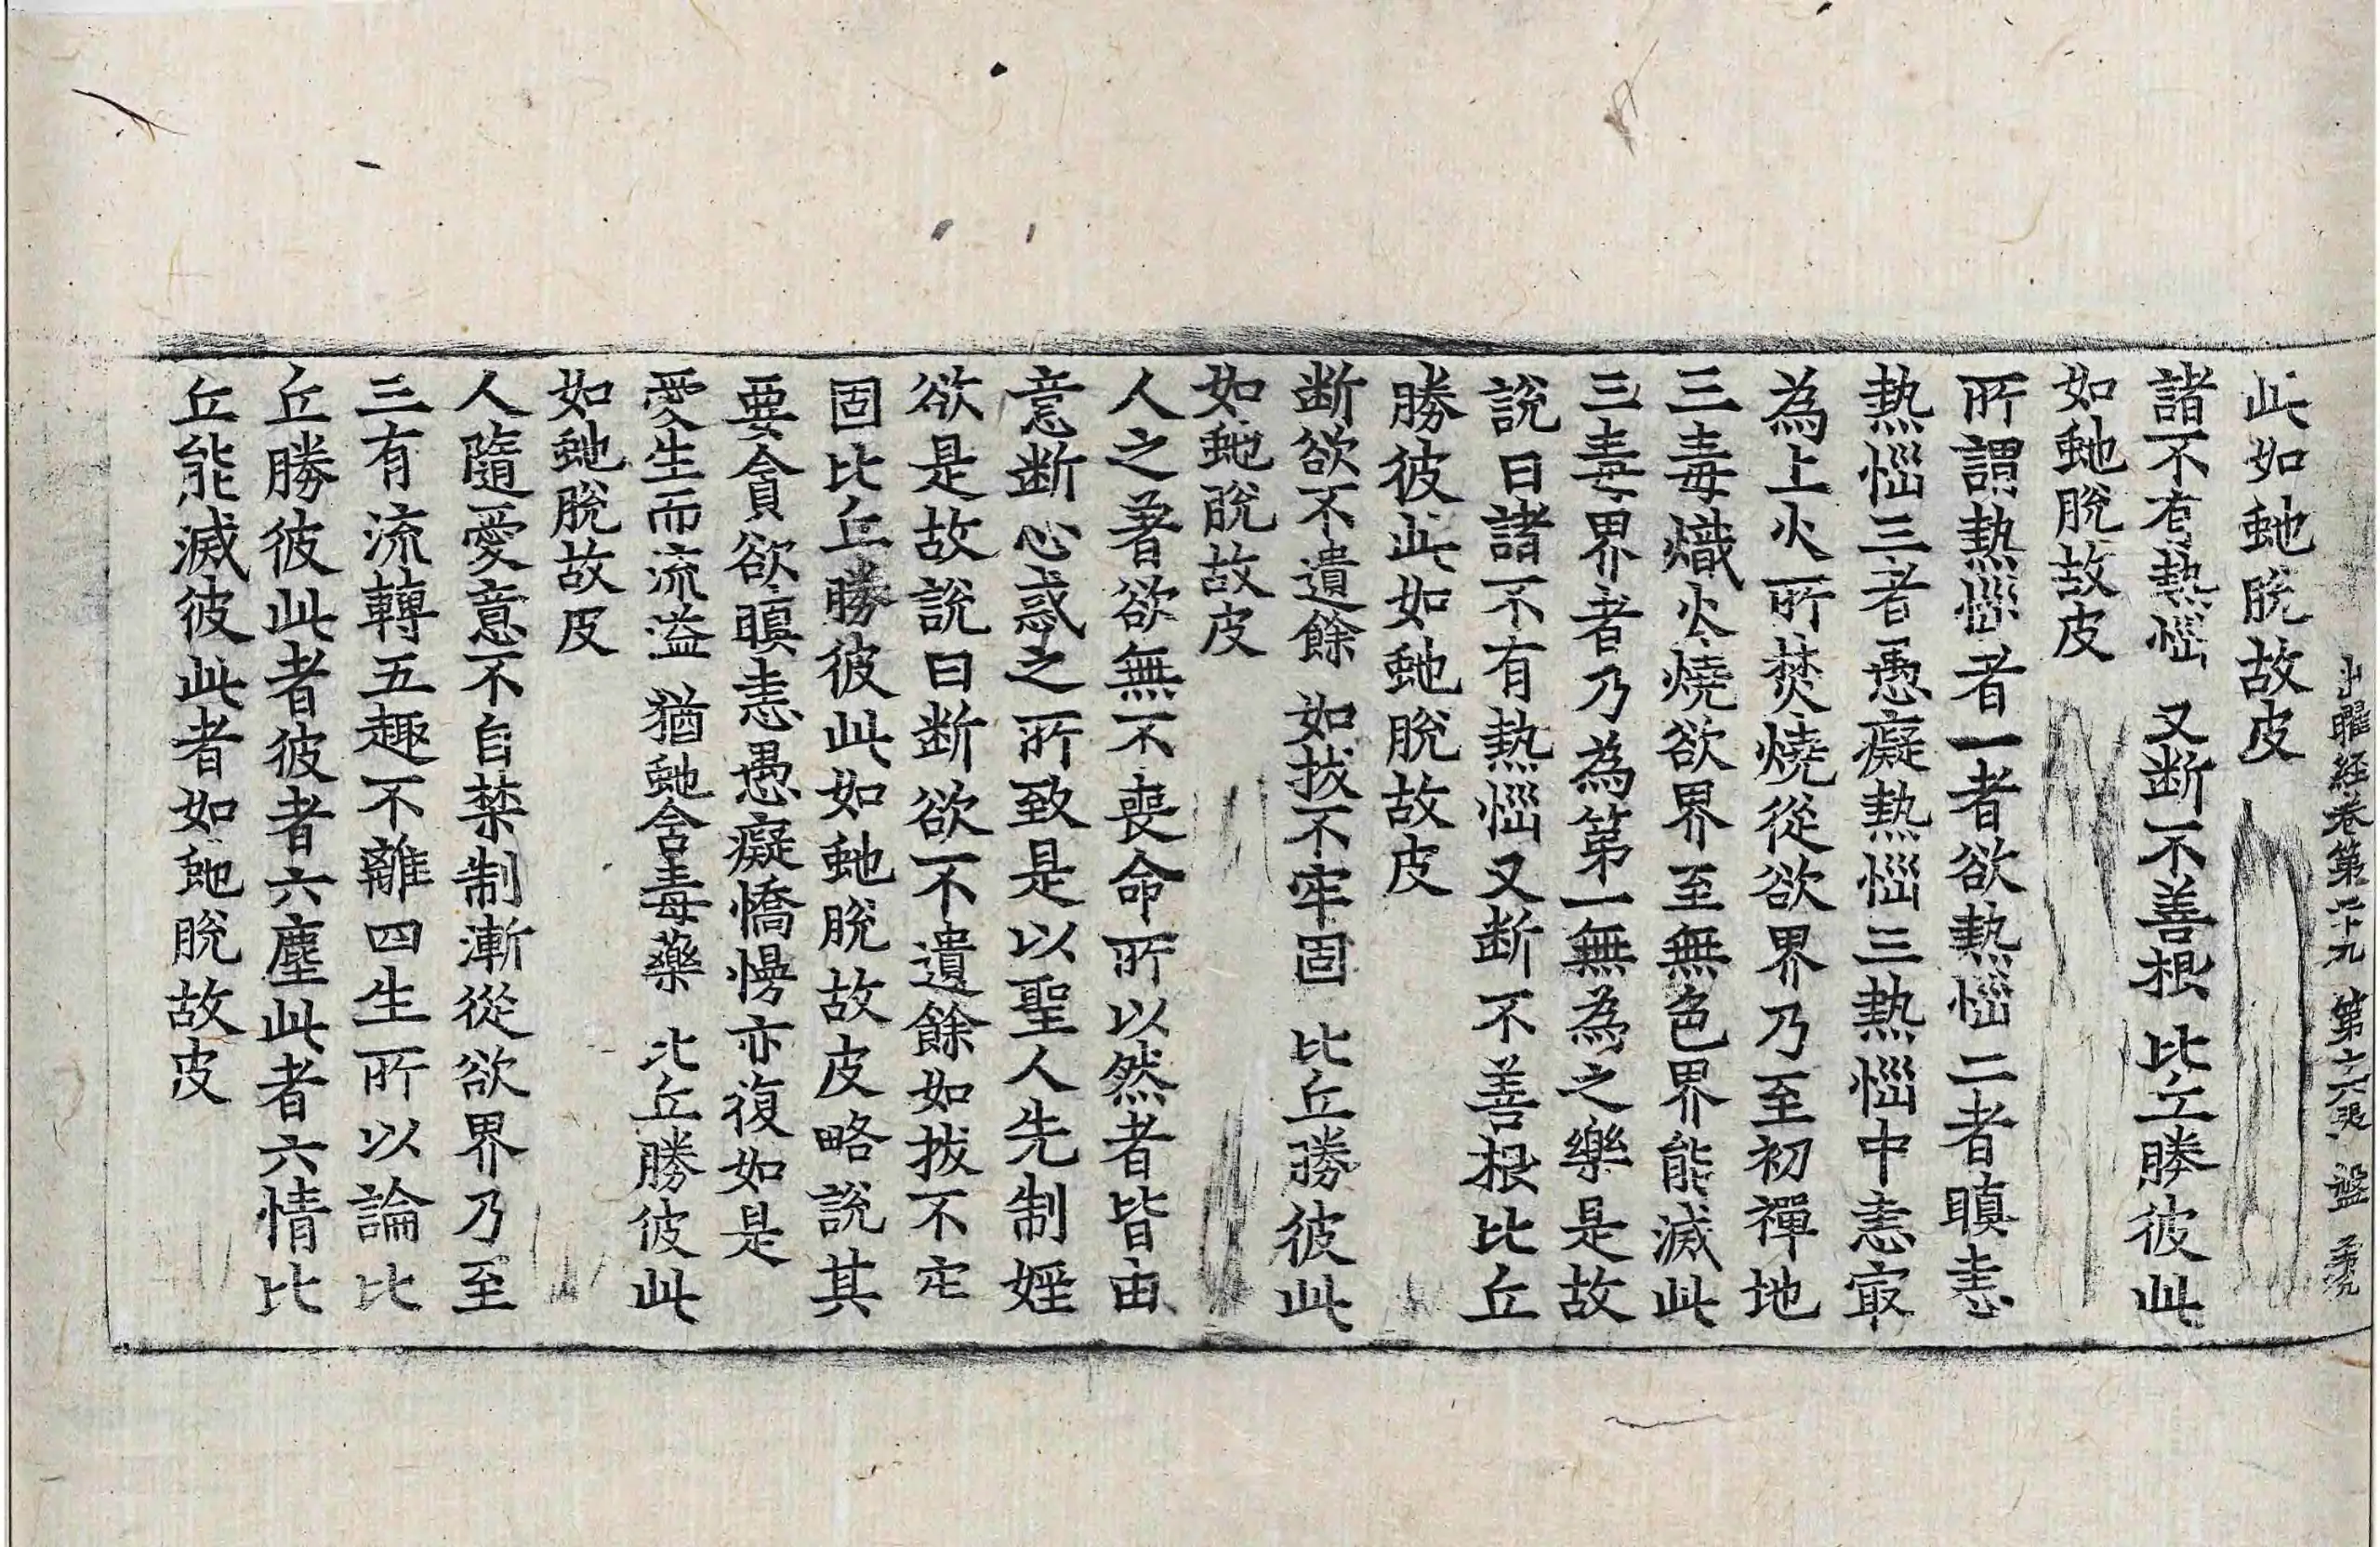 出曜経卷第二十九 第十六張 盤
此如虵脫故皮
諸不有熱惱 又断不善根 比丘勝彼此
如虵脫故皮
所謂熱惱者一者欲熱惱二者瞋恚
熱惱三者愚癡熱惱三熱惱中恚㝡
為上火所焚燒從欲界乃至初禪地
三毒熾火燒欲界至無色界能滅此
三毒界者乃為第一無為之樂是故
說曰諸不有熱惱又断不善根比丘
勝彼此如虵脫故皮
断欲不遺餘 如拔不牢固 比丘勝彼此
如虵脫故皮
人之著欲無不喪命所以然者皆由
意断心惑之所致是以聖人先制婬
欲是故說曰断欲不遺餘如拔不牢
固比丘勝彼此如虵脫故皮略說其
要貪欲瞋恚愚癡憍慢亦復如是
愛生而流溢 猶虵含毒藥 比丘勝彼此
如虵脫故皮
人隨愛意不自禁制漸從欲界乃至
三有流轉五趣不離四生所以論比
丘勝彼此者彼者六塵此者六情比
丘能滅彼此者如虵脫故皮